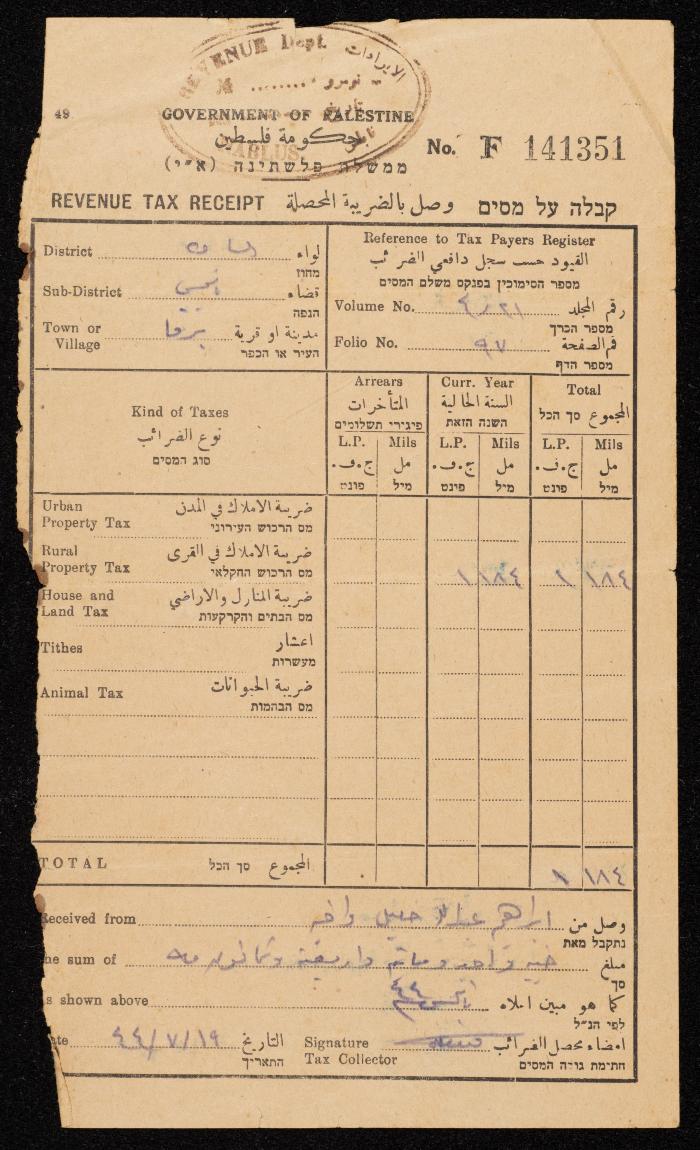 REVENUE Dept. الايرادات
نومرو ........
تاريخ
NABLUS نابلس
49
GOVERNMENT OF PALESTINE
حكومة فلسطين
ממשלת פלשתינה (א״י)
No. F 141351
REVENUE TAX RECEIPT وصل بالضريبة المحصلة קבלה על מסים
District لواء
מחוז
Sub-District نابلس قضاء
הנפה
Town or Village برقا مدينة او قرية
העיר או הכפר
Reference to Tax Payers Register
القيود حسب سجل دافعي الضرائب
מספר הסימוכין בפנקס משלם המסים
Volume No. ٤/٢١ رقم المجلد
מספר הכרך
Folio No. ٩٧ رقم الصفحة
מספר הדף
Kind of Taxes
نوع الضرائب
סוג המסים
Arrears
المتأخرات
פיגורי תשלומים
Curr. Year
السنة الحالية
השנה הזאת
Total
المجموع סך הכל
L.P. Mils L.P. Mils L.P. Mils
ج.ف. مل ج.ف. مل ج.ف. مل
פונט מיל פונט מיל פונט מיל
Urban Property Tax ضريبة الاملاك في المدن
מס הרכוש העירוני
Rural Property Tax ضريبة الاملاك في القرى
מס הרכוש החקלאי
١ ١٨٤ ١ ١٨٤
House and Land Tax ضريبة المنازل والاراضي
מס הבתים והקרקעות
Tithes اعشار
מעשרות
Animal Tax ضريبة الحيوانات
מס הבהמות
TOTAL סך הכל المجموع ١ ١٨٤
Received from ابراهيم عبدالله خليل واخيه وصل من
נתקבל מאת
he sum of جنيه واحد ومائة واربعة وثمانون مل مبلغ
סך
s shown above كما هو مبين اعلاه
לפי הנ״ל
ate ٤٤/٧/١٩ التاريخ
התאריך
Signature Tax Collector امضاء محصل الضرائب
חתימת גובה המסים